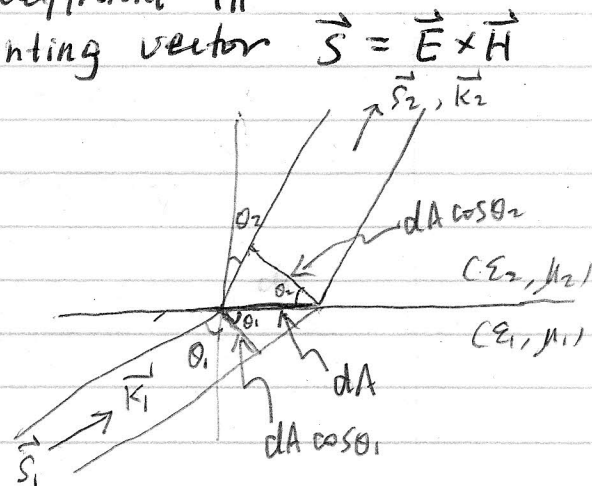 nting vector S⃗ = E⃗ × H⃗
S⃗₂, k⃗₂
θ₂
dA cosθ₂
(ε₂, μ₂)
θ₂
θ₁
(ε₁, μ₁)
θ₁
dA
k⃗₁
dA cosθ₁
S⃗₁